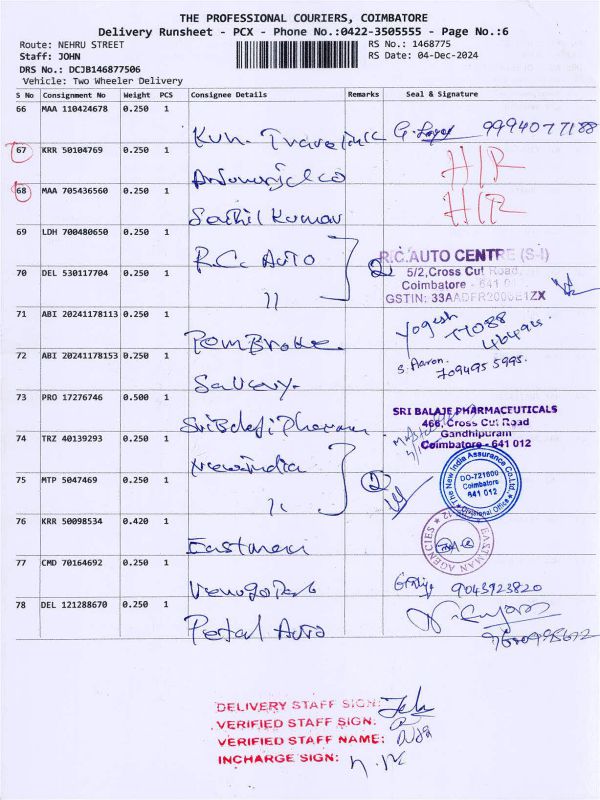 THE PROFESSIONAL COURIERS, COIMBATORE
Delivery Runsheet - PCX - Phone No.:0422-3505555 - Page No.:6
Route: NEHRU STREET
RS No.: 1468775
Staff: JOHN
RS Date: 04-Dec-2024
DRS No.: DCJB146877506
Vehicle: Two Wheeler Delivery
S No Consignment No Weight PCS Consignee Details Remarks Seal & Signature
66 MAA 110424678 0.250 1
9994077188
67 KRR 50104769 0.250 1
H/R
68 MAA 705436560 0.250 1
Sathil Kumar H/R
69 LDH 700480650 0.250 1
R.C. Auto
R.C.AUTO CENTRE (S-I)
5/2,Cross Cut Road,
Coimbatore - 641 0
70 DEL 530117704 0.250 1
2
GSTIN: 33AADFR2006E1ZX
71 ABI 20241178113 0.250 1
Yogesh
72 ABI 20241178153 0.250 1
S. Aaron.
709495 5995.
73 PRO 17276746 0.500 1
Sri Balaji Pharma
SRI BALAJE PHARMACEUTICALS
466, Cross Cut Road
Gandhipuram
Coimbatore - 641 012
74 TRZ 40139293 0.250 1
New india
75 MTP 5047469 0.250 1
2
The New India Assurance Co.Ltd
DO-721600
Coimbatore
641 012
Divisional Office
76 KRR 50098534 0.420 1
Eastman
EASTMAN AGENCIES
77 CMD 70164692 0.250 1
9043923820
78 DEL 121288670 0.250 1
Petal Auto
DELIVERY STAFF SIGN:
VERIFIED STAFF SIGN:
VERIFIED STAFF NAME:
INCHARGE SIGN: